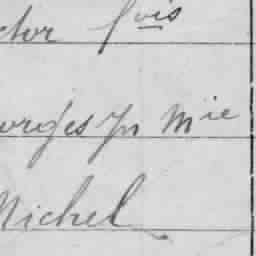 ctor fois
orges Jn Mie
Michel